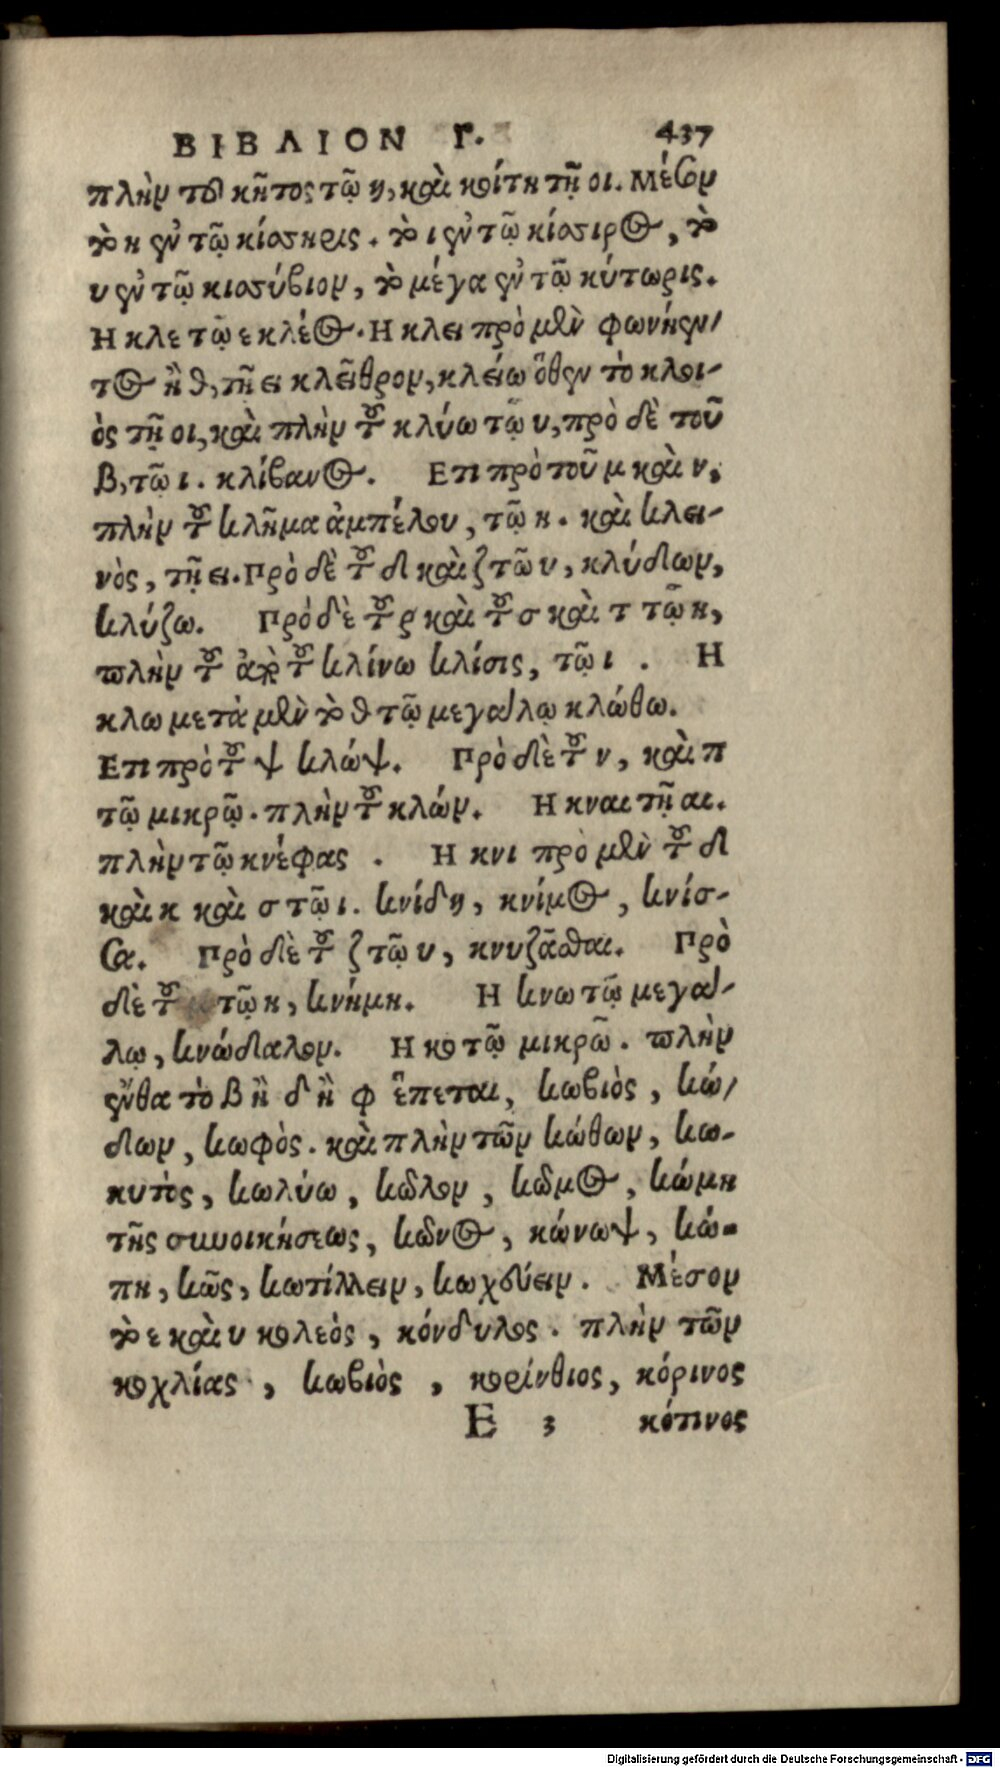 ΒΙΒΛΙΟΝ Γ. 437
πλὴν τοῦ κῆτος τῷ η, καὶ κοίτη τῇ οι. Μέσον
τὸ η ἐν τῷ κίσσηρις. τὸ ι ἐν τῷ κίσσιρος, τὸ
υ ἐν τῷ κισσύβιον, τὸ μέγα ἐν τῷ κύτωρις.
Η κλε τῷ ε κλέος. Η κλει πρὸ μὲν φωνήεν/
τος ἢ θ, τῇ ει κλεῖθρον, κλείω ὅθεν τὸ κλοι-
ὸς τῇ οι, καὶ πλὴν τοῦ κλύω τῷ υ, πρὸ δὲ τοῦ
β, τῷ ι. κλίβανος. Ετι πρὸ τοῦ μ καὶ ν,
πλὴν τοῦ κλῆμα ἀμπέλου, τῷ η. καὶ κλει-
νὸς, τῇ ει. Πρὸ δὲ τοῦ δ καὶ ζ τῷ υ, κλύδων,
κλύζω. Πρὸ δὲ τοῦ ρ καὶ τοῦ σ καὶ τ τῷ η,
πλὴν τοῦ παρὰ τοῦ κλίνω κλίσις, τῷ ι . Η
κλω μετὰ μὲν τὸ θ τῷ μεγάλῳ κλώθω.
Ετι πρὸ τοῦ ψ κλώψ. Πρὸ δὲ τοῦ ν, καὶ π
τῷ μικρῷ. πλὴν τοῦ κλών. Η κναι τῇ αι.
πλὴν τῷ κνέφας . Η κνι πρὸ μὲν τοῦ δ
καὶ κ καὶ σ τῷ ι. κνίδη, κνίμος, κνίσ-
σα. Πρὸ δὲ τοῦ ζ τῷ υ, κνυζᾶσθαι. Πρὸ
δὲ τοῦ μ τῷ η, κνήμη. Η κνω τῷ μεγά-
λῳ, κνώδαλον. Η κο τῷ μικρῷ. πλὴν
ἔνθα τὸ β ἢ δ ἢ φ ἕπεται, κωβιὸς, κώ/
δων, κωφὸς. καὶ πλὴν τῶν κώθων, κω-
κυτὸς, κωλύω, κῶλον, κῶμος, κώμη
τῆς συνοικήσεως, κῶνος, κώνωψ, κώ-
πη, κῶς, κωτίλλειν, κωχεύειν. Μέσον
τὸ ε καὶ υ κολεὸς, κόνδυλος. πλὴν τῶν
κοχλίας, κωβιὸς, κορίνθιος, κόρινος
Ε 3 κότινος
Digitalisierung gefördert durch die Deutsche Forschungsgemeinschaft - DFG